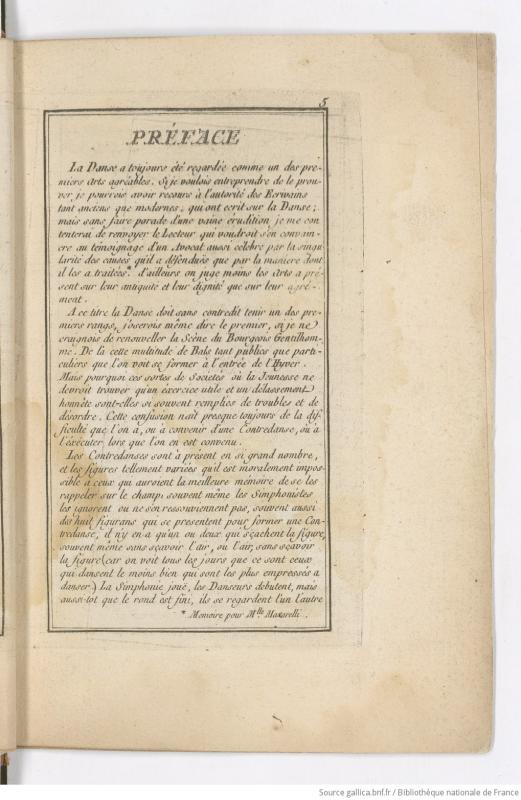 5
PRÉFACE
La Danse a toujours été regardée comme un des pre-
miers Arts agréables. Si je voulois entreprendre de le prou-
ver je pourrois avoir recours à l'autorité des Ecrivains
tant anciens que modernes, qui ont ecrit sur la Danse;
mais sans faire parade d'une vaine érudition je me con
tenterai de renvoyer le Lecteur qui voudroit s'en convain-
cre au témoignage d'un Avocat aussi célébre par la singu
larité des causes qu'il a défendües que par la maniere dont
il les a traitées.* d'ailleurs on juge moins les Arts a pré-
sent sur leur antiquité et leur dignité que sur leur agré-
ment.
A ce titre la Danse doit sans contredit tenir un des pre-
miers rangs, j'oserois même dire le premier, si je ne
craignois de renouveller la Scêne du Bourgeois Gentilhom-
me. De la cette multitude de Bals tant publics que parti-
culiers que l'on voit se former à l'entrée de l'Hyver.
Mais pourquoi ces sortes de Societés où la Jeunesse ne
devroit trouver qu'un éxercice utile et un délassement
honnête sont-elles si souvent remplies de troubles et de
désordre. Cette confusion naît presque toujours de la dif-
ficulté que l'on à, ou à convenir d'une Contredanse, ou à
l'éxécuter, lors que l'on en est convenu.
Les Contredanses sont à présent en si grand nombre,
et les figures tellement variées qu'il est moralement impos-
sible à ceux qui auroient la meilleure mémoire de se les
rappeler sur le champ, souvent même les Simphonistes
les ignorent ou ne s'en ressouviennent pas, souvent aussi
des huit figurans qui se presentent pour former une Con-
tredanse, il n'y en a qu'un ou deux qui sçachent la figure,
souvent même sans sçavoir l'air, ou l'air, sans sçavoir
la figure (car on voit tous les jours que ce sont ceux
qui dansent le moins bien qui sont les plus empressés a
danser) La Simphonie joue, les Danseurs debutent, mais
aussi-tot que le rond est fini, ils se regardent l'un l'autre
* Memoire pour Mlle. Mazarelli.
Source gallica.bnf.fr / Bibliothèque nationale de France